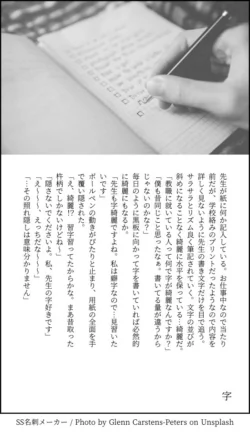 字
先生が紙に何か記入している。お仕事中なので当たり
前だが、学校絡みのプリントだったようなので内容を
詳しく見ないように先生の書き文字だけを目で追う。
サラサラとリズム良く筆記されていく。文字の並びが
斜めになることなく綺麗に水平を保っている…綺麗だ。
「教職に就いている人って何で字が綺麗なんですか?」
「僕も昔同じこと思ったなぁ。書いてる量が違うから
じゃないのかな?」
毎日のように黒板に向かって字を書いていれば必然的
に綺麗にもなるか。
「先生も字綺麗ですよね。私は癖字なので…見習いた
いです」
ボールペンの動きがぴたりと止まり、用紙の全面を手
で覆い隠された。
「え、綺麗!?　習字習ってたからかな。まあ昔取った
杵柄でしかないけどね〜」
「隠さないでくださいよ。私、先生の字好きです」
「え〜〜〜、えっちだな〜〜〜」
「…その照れ隠しは意味分かりません」
SS名刺メーカー / Photo by Glenn Carstens-Peters on Unsplash